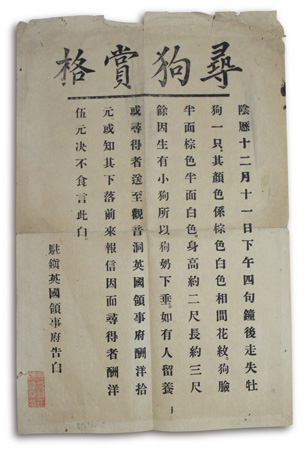 尋狗賞格
陰曆十二月十一日下午四句鐘後走失牡
狗一只其顏色係棕色白色相間花紋。狗臉
半面棕色半面白色。身高約二尺長約三尺
餘因生有小狗所以狗奶下垂。如有人留養
或尋得者送至觀音洞英國領事府酬洋拾
元或知其下落前來報信因而尋得者酬洋
伍元决不食言此白。
駐鎮英國領事府告白